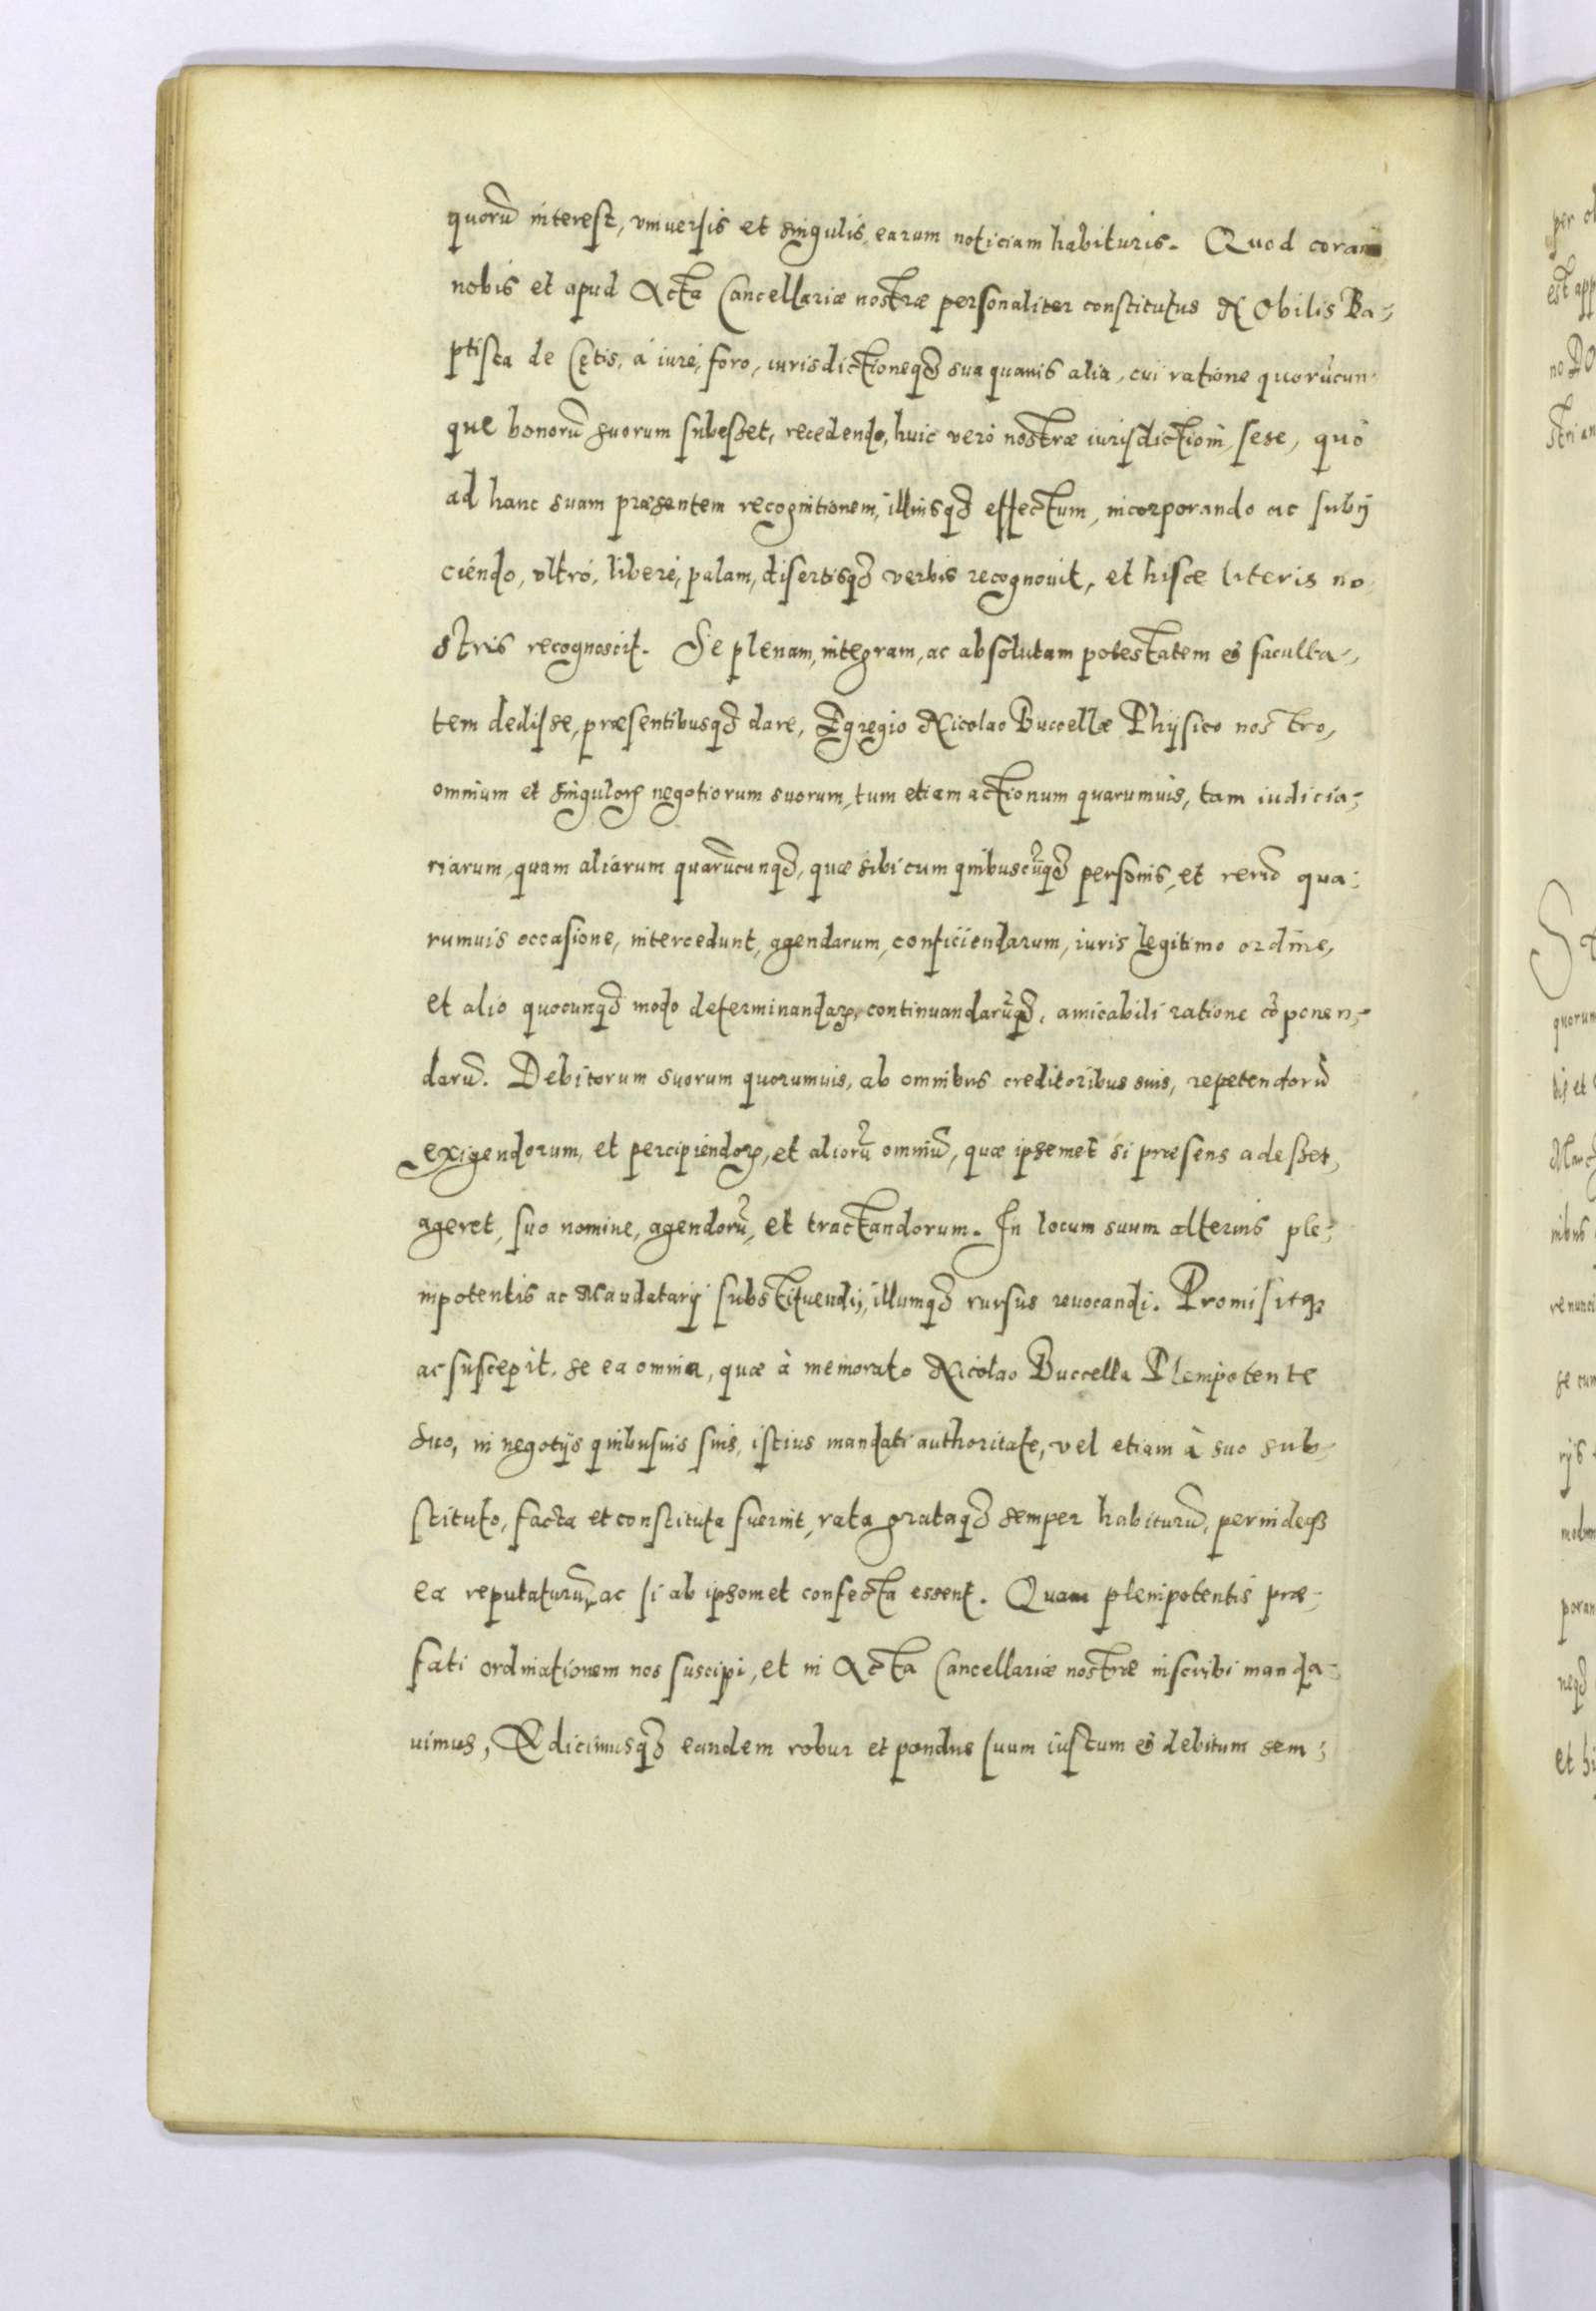 quorũ interest, vniuersis et singulis earum noticiam habituris. Quod coram
nobis et apud Acta Cancellariæ nostræ personaliter constitutus Nobilis Ba-
ptista de Cętis, à iure, foro, iurisdictioneq3 sua quauis alia, cui ratione quorũcun
que bonorũ suorum subesset, recedendo, huic verò nostræ iurisdictioni, sese, quò
ad hanc suam præsentem recognitionem, illiusq3 effectum, incorporando ac subij
ciendo, vltrò, liberè, palam, disertisq3 verbis recognouit, et hisce literis no
stris recognoscit. Se plenam, integram, ac absolutam potestatem et faculta-
tem dedisse, præsentibusq3 dare, Egregio Nicolao Buccellæ Physico nostro,
omnium et singuloꝝ negotiorum suorum, tum etiam actionum quarumuis, tam iudicia-
riarum, quam aliarum quarũcunq3, quæ sibi cum quibuscũq3 personis, et rerũ qua-
rumuis occasione, intercedunt, agendarum, conficiendarum, iuris legitimo ordine,
et alio quocunq3 modo determinandaꝝ, continuandarũq3, amicabili ratione cõponen-
darũ. Debitorum suorum quorumuis, ab omnibus creditoribus suis, repetendorũ
exigendorum, et percipiendoꝝ, et aliorũ omniũ, quæ ipsemet si præsens adesset,
ageret, suo nomine, agendorũ, et tractandorum. In locum suum alterius ple-
nipotentis ac Mandatarij substituendi, illumq3 rursus reuocandi. Promisitq3
ac suscepit, se ea omnia, quæ à memorato Nicolao Buccella Plenipotente
suo, in negotijs quibusuis suis, istius mandati authoritate, vel etiam à suo sub-
stituto, facta et constituta fuerint, rata grataq3 semper habiturũ, perindeq3
ea reputaturũ, ac si ab ipsomet confecta essent. Quam plenipotentis præ-
fati ordinationem nos suscipi, et in Acta Cancellariæ nostræ inscribi manda-
uimus, Edicimusq3 eandem robur et pondus suum iustum et debitum sem-